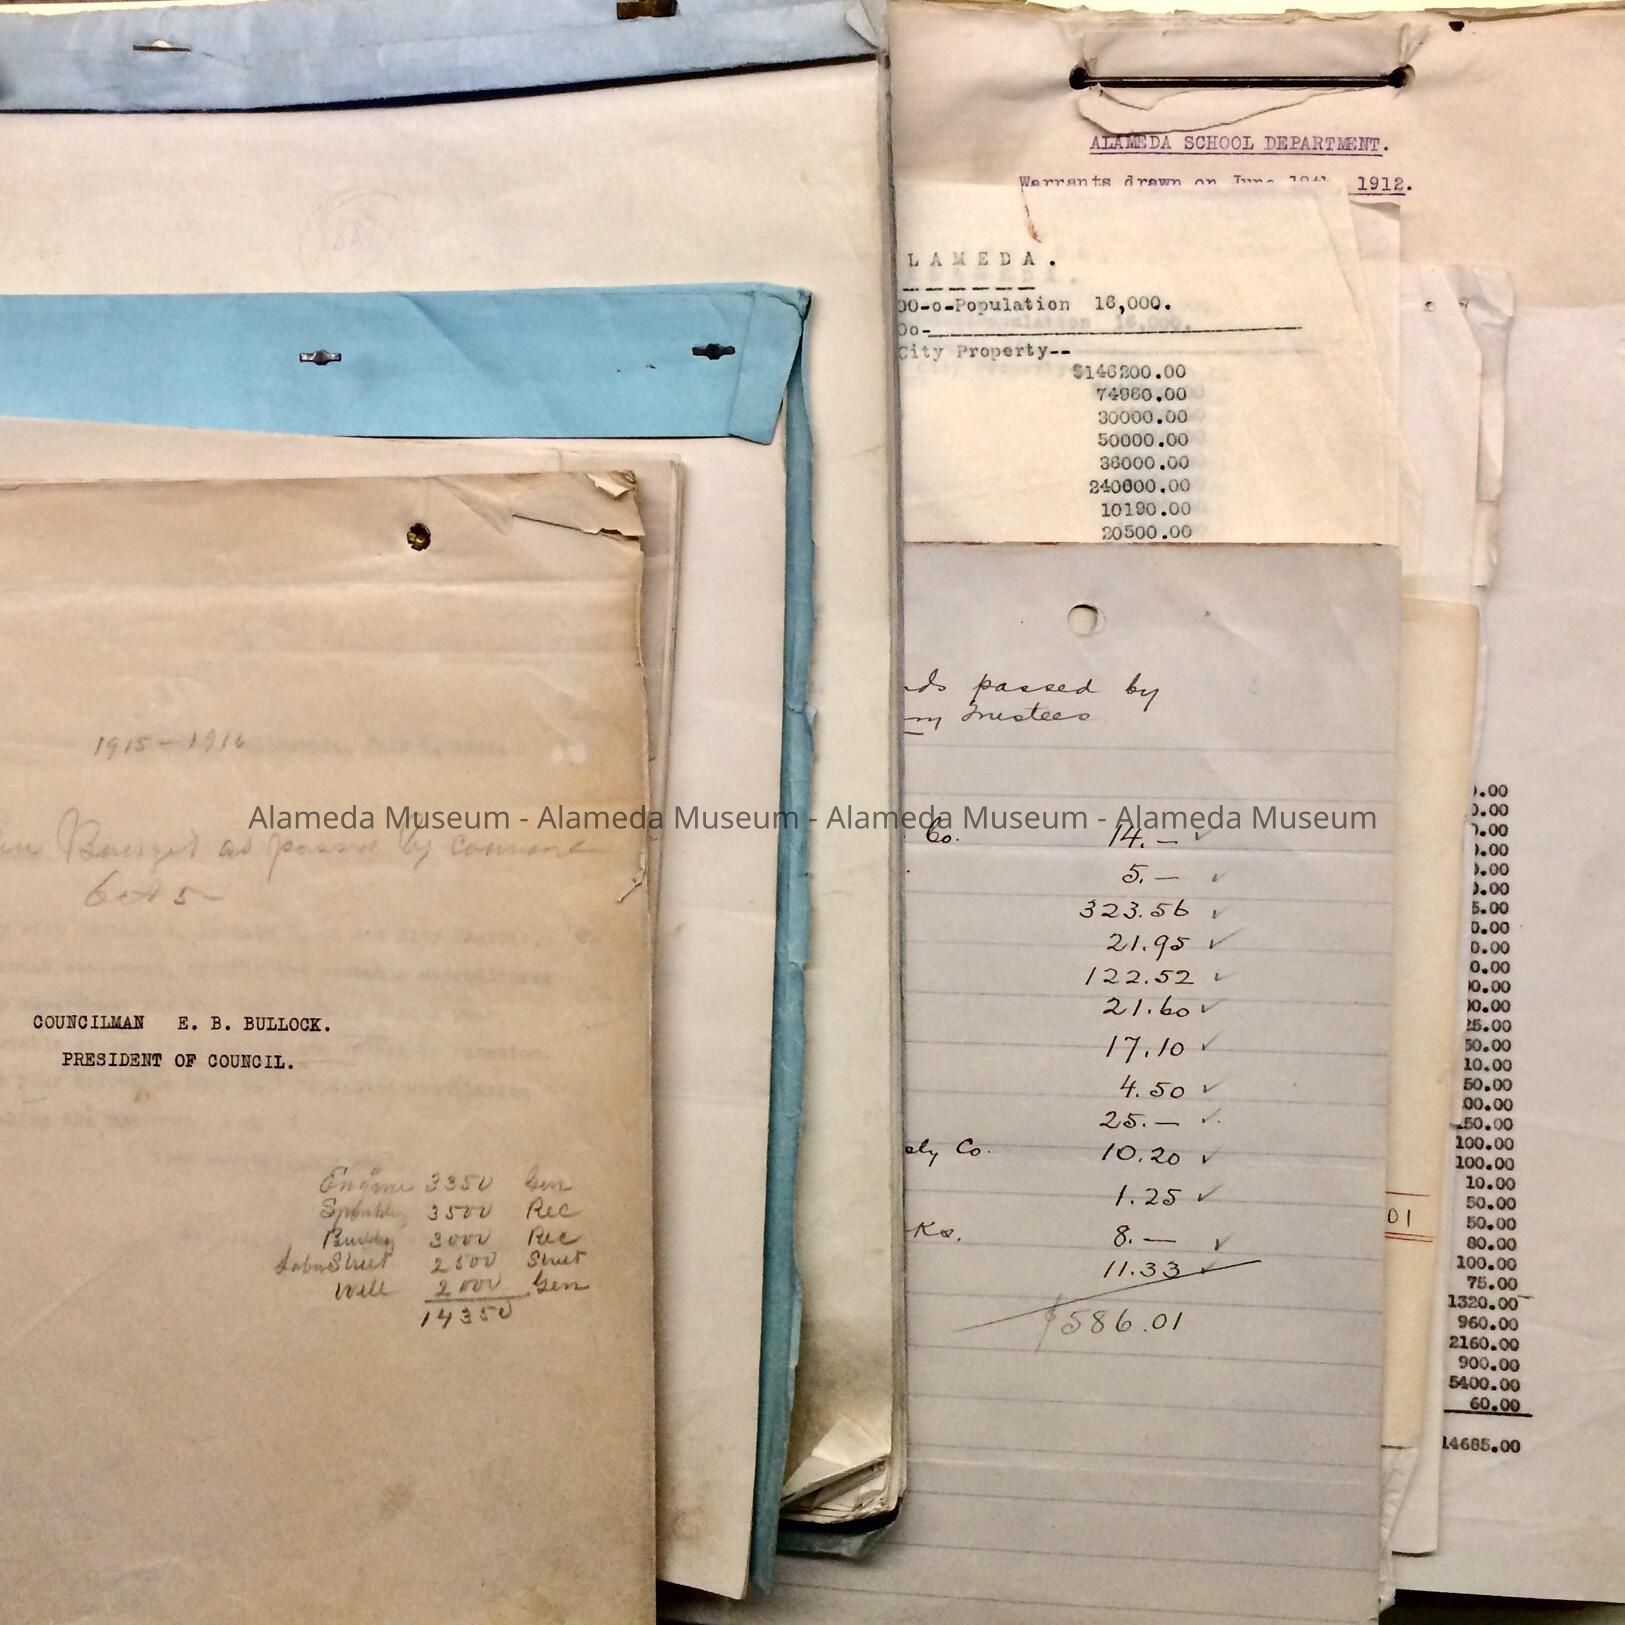 ALAMEDA SCHOOL DEPARTMENT.
Warrants drawn on June 1912.
LAMEDA.
00-o-Population 16,000.
Oo-
City Property--
$146200.00
74960.00
30000.00
50000.00
36000.00
240600.00
10190.00
20500.00
passed by
Trustees
Co. 14.— ✓
5.— ✓
323.56 ✓
21.95 ✓
122.52 ✓
21.60 ✓
17.10 ✓
4.50 ✓
25.— ✓
ely Co. 10.20 ✓
1.25 ✓
8.— ✓
11.33 ✓
$586.01
1915-1916
Budget as passed by council
Oct 5-
COUNCILMAN E. B. BULLOCK.
PRESIDENT OF COUNCIL.
Engine 3350 Gen
3500 Rec
3000 Rec
Street 2500 Street
Well 2000 Gen
14350
Alameda Museum - Alameda Museum - Alameda Museum - Alameda Museum
01
).00
0.00
0.00
0.00
0.00
0.00
5.00
0.00
0.00
0.00
00.00
00.00
25.00
50.00
10.00
50.00
00.00
150.00
100.00
100.00
10.00
50.00
50.00
80.00
100.00
75.00
1320.00
960.00
2160.00
900.00
5400.00
60.00
14685.00